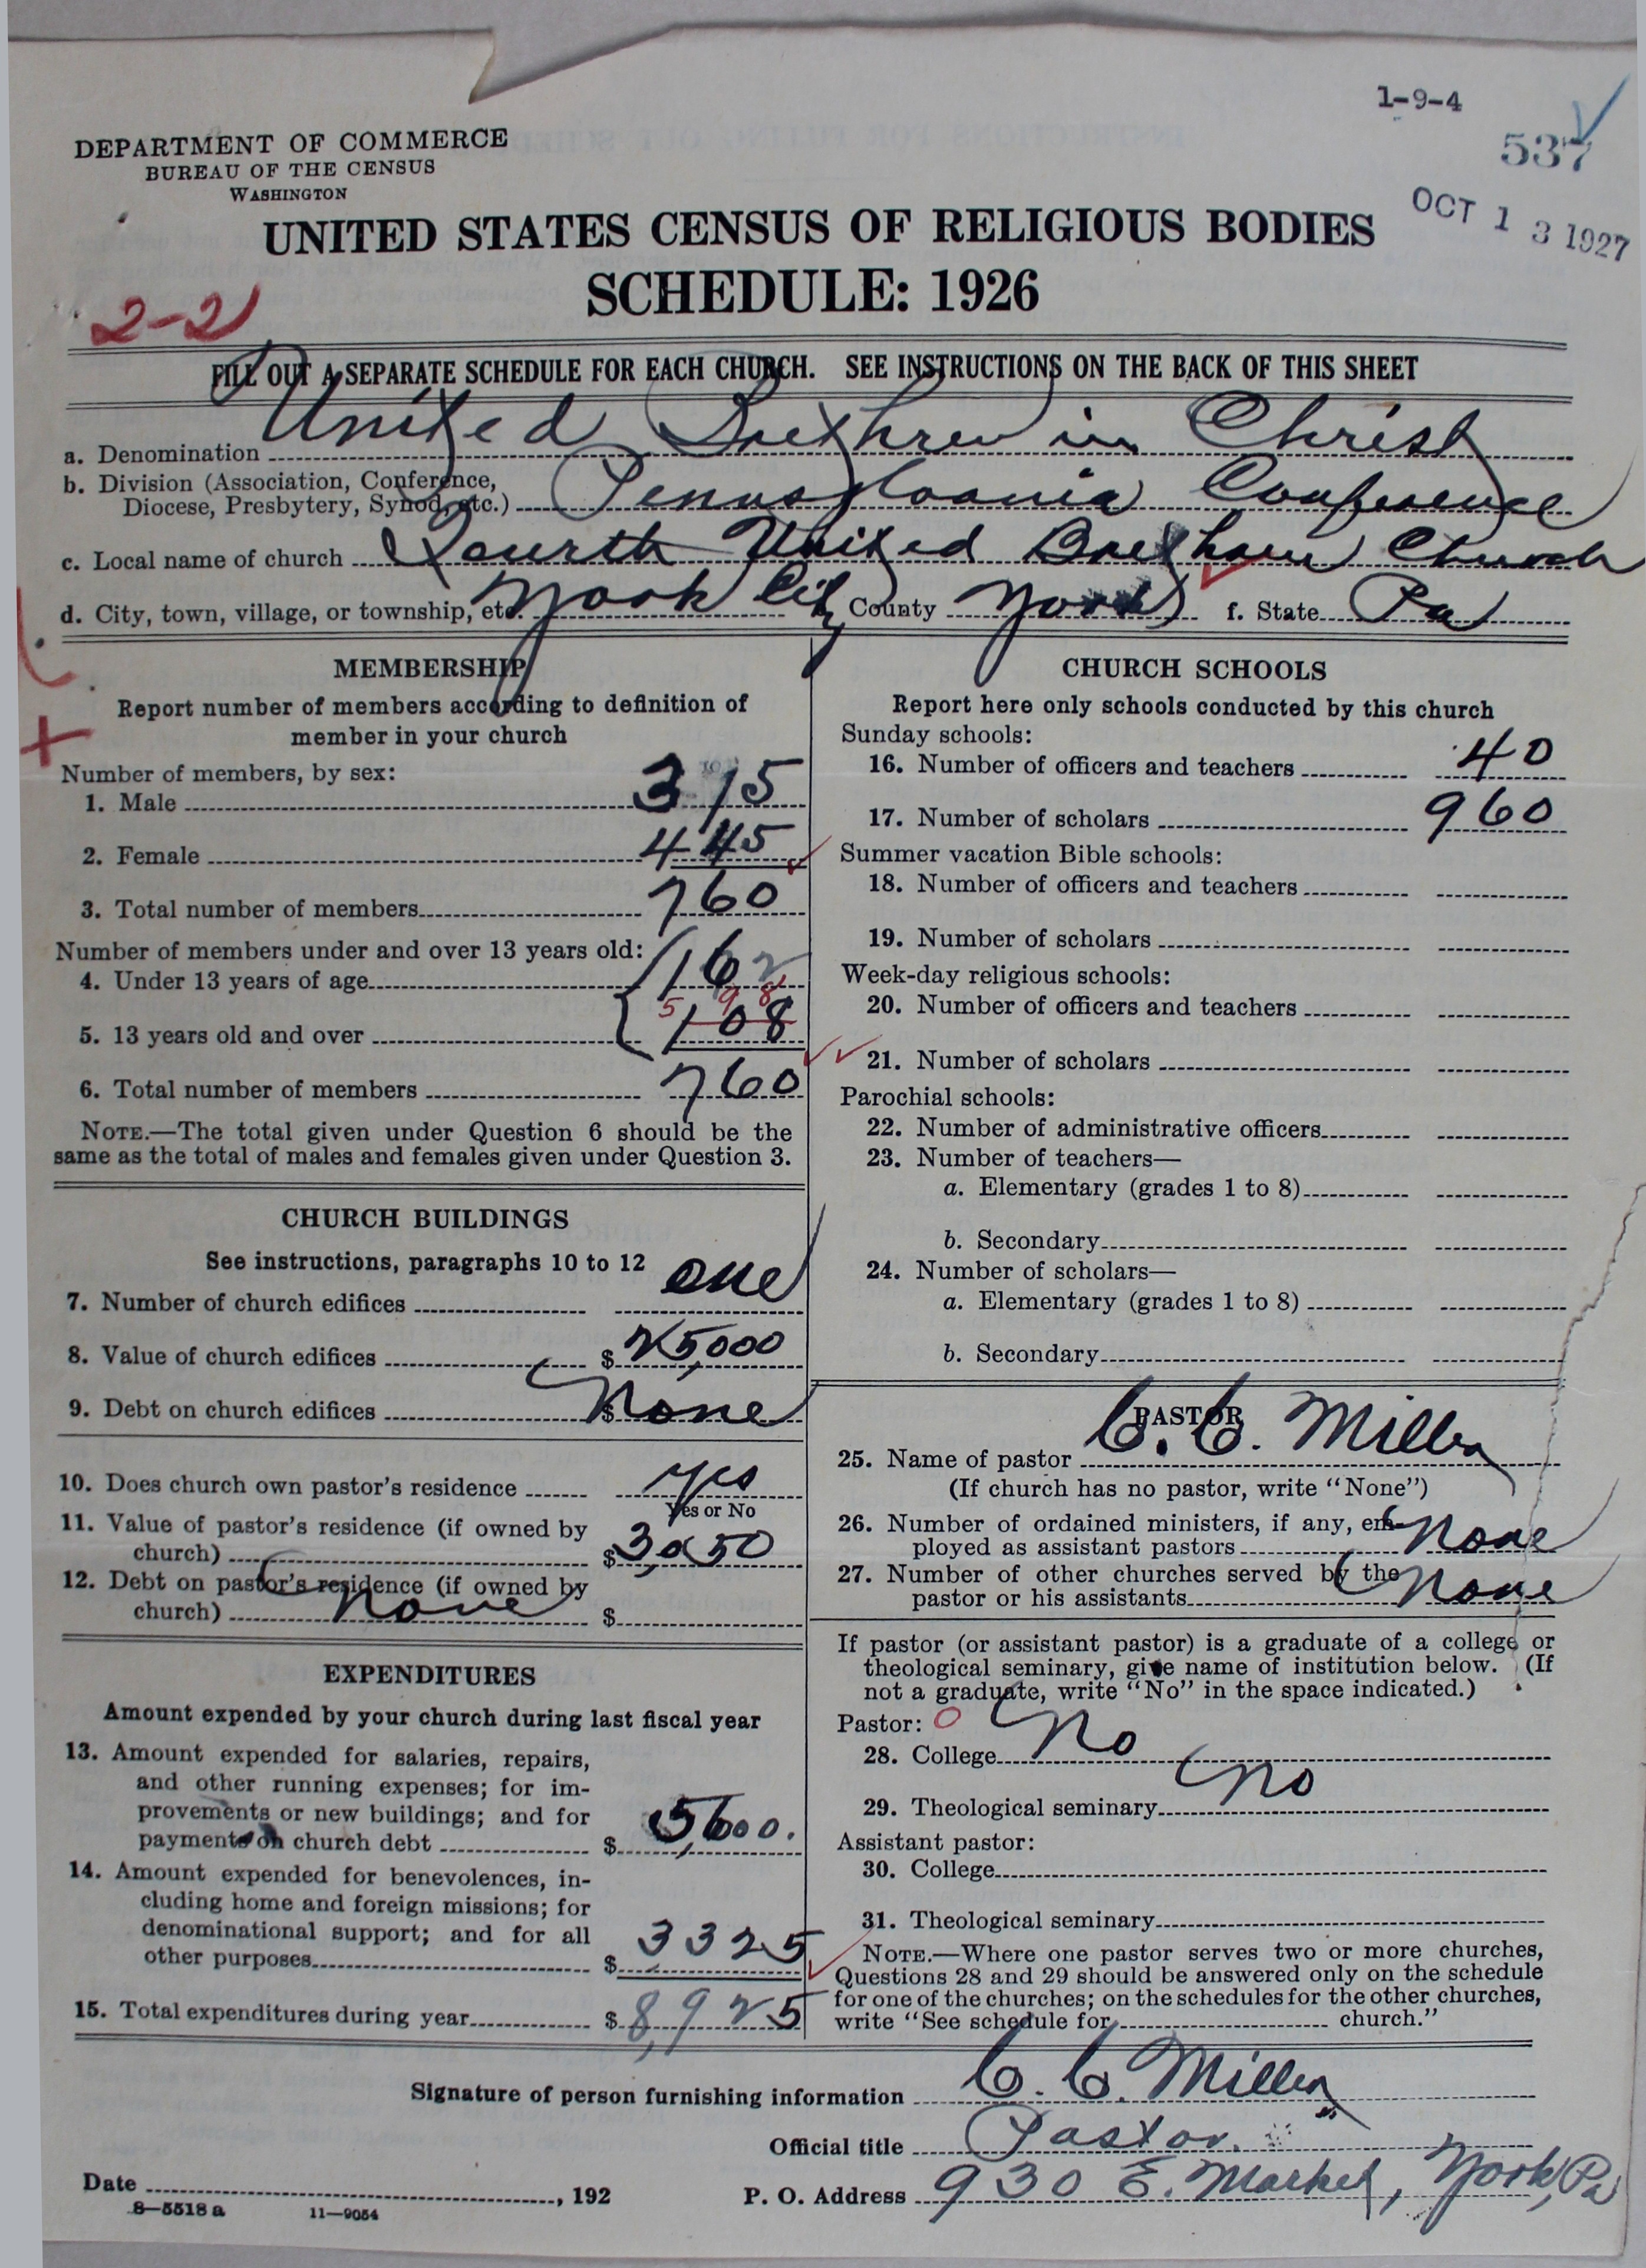 1-9-4
537
OCT 13 1927
DEPARTMENT OF COMMERCE
BUREAU OF THE CENSUS
WASHINGTON
UNITED STATES CENSUS OF RELIGIOUS BODIES
SCHEDULE: 1926
2-2
FILL OUT A SEPARATE SCHEDULE FOR EACH CHURCH. SEE INSTRUCTIONS ON THE BACK OF THIS SHEET
a. Denomination United Brethren in Christ
b. Division (Association, Conference,
Diocese, Presbytery, Synod, etc.) Pennsylvania Conference
c. Local name of church Fourth United Brethren Church
d. City, town, village, or township, etc. York City County York f. State Pa
MEMBERSHIP
Report number of members according to definition of
member in your church
Number of members, by sex:
1. Male 315
2. Female 445
3. Total number of members 760
Number of members under and over 13 years old:
4. Under 13 years of age 162
5 9 8
5. 13 years old and over 108
6. Total number of members 760
NOTE.—The total given under Question 6 should be the
same as the total of males and females given under Question 3.
CHURCH BUILDINGS
See instructions, paragraphs 10 to 12
7. Number of church edifices one
8. Value of church edifices $ 25,000
9. Debt on church edifices $ None
10. Does church own pastor's residence yes
Yes or No
11. Value of pastor's residence (if owned by
church) $
12. Debt on pastor's residence (if owned by
church) None $
EXPENDITURES
Amount expended by your church during last fiscal year
13. Amount expended for salaries, repairs,
and other running expenses; for im-
provements or new buildings; and for
payments on church debt $ 5,600.
14. Amount expended for benevolences, in-
cluding home and foreign missions; for
denominational support; and for all
other purposes $ 3325
15. Total expenditures during year $ 8,925
CHURCH SCHOOLS
Report here only schools conducted by this church
Sunday schools:
16. Number of officers and teachers 40
17. Number of scholars 960
Summer vacation Bible schools:
18. Number of officers and teachers
19. Number of scholars
Week-day religious schools:
20. Number of officers and teachers
21. Number of scholars
Parochial schools:
22. Number of administrative officers
23. Number of teachers—
a. Elementary (grades 1 to 8)
b. Secondary
24. Number of scholars—
a. Elementary (grades 1 to 8)
b. Secondary
PASTOR
25. Name of pastor C. C. Miller
(If church has no pastor, write "None")
26. Number of ordained ministers, if any, em-
ployed as assistant pastors None
27. Number of other churches served by the
pastor or his assistants None
If pastor (or assistant pastor) is a graduate of a college or
theological seminary, give name of institution below. (If
not a graduate, write "No" in the space indicated.)
Pastor: 0
28. College No
29. Theological seminary No
Assistant pastor:
30. College
31. Theological seminary
NOTE.—Where one pastor serves two or more churches,
Questions 28 and 29 should be answered only on the schedule
for one of the churches; on the schedules for the other churches,
write "See schedule for church."
Signature of person furnishing information C. C. Miller
Official title Pastor.
Date , 192
P. O. Address 930 E. Market, York, Pa
8—5518 a 11—9054